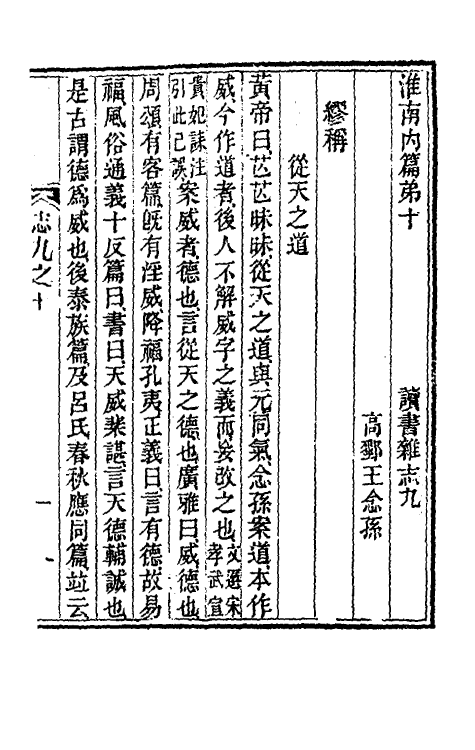 淮南內篇弟十　讀書雜志九
高郵王念孫
繆稱
從天之道
黃帝曰芒芒昧昧從天之道與元同氣念孫案道本作
威今作道者後人不解威字之義而妄改之也文選宋孝武宣
貴妃誄注引此已誤案威者德也言從天之德也廣雅曰威德也
周頌有客篇旣有淫威降福孔夷正義曰言有德故易
福風俗通義十反篇曰書曰天威棐諶言天德輔誠也
是古謂德爲威也後泰族篇及呂氏春秋應同篇竝云
志九之十
一